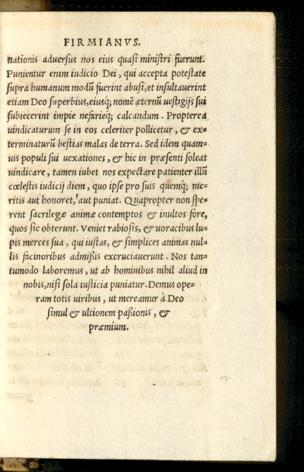 FIRMIANVS.
nationis aduersus nos eius quasi ministri fuerunt.
Punientur enim iudicio Dei, qui accepta potestate
supra humanum modū fuerint abusi, et insultauerint
etiam Deo superbius, eiusq; nomē æternū uestigijs sui
subiecerint impie nefarieq; calcandum. Propterea
uindicaturum se in eos celeriter pollicetur, & ex-
terminaturū bestias malas de terra. Sed idem quam-
uis populi sui uexationes, & hic in præsenti soleat
uindicare, tamen iubet nos expectare patienter illū
cœlestis iudicij diem, quo ipse pro suis quemq; me-
ritis aut honoret, aut puniat. Quapropter non spe-
rent sacrilegæ animæ contemptos & inultos fore,
quos sic obterunt. Veniet rabiosis, & uoracibus lu-
pis merces sua, qui iustas, & simplices animas nul-
lis facinoribus admissis excruciauerunt. Nos tan-
tumodo laboremus, ut ab hominibus nihil aliud in
nobis, nisi sola iusticia puniatur. Demus ope-
ram totis uiribus, ut mereamur à Deo
simul & ultionem passionis, &
præmium.